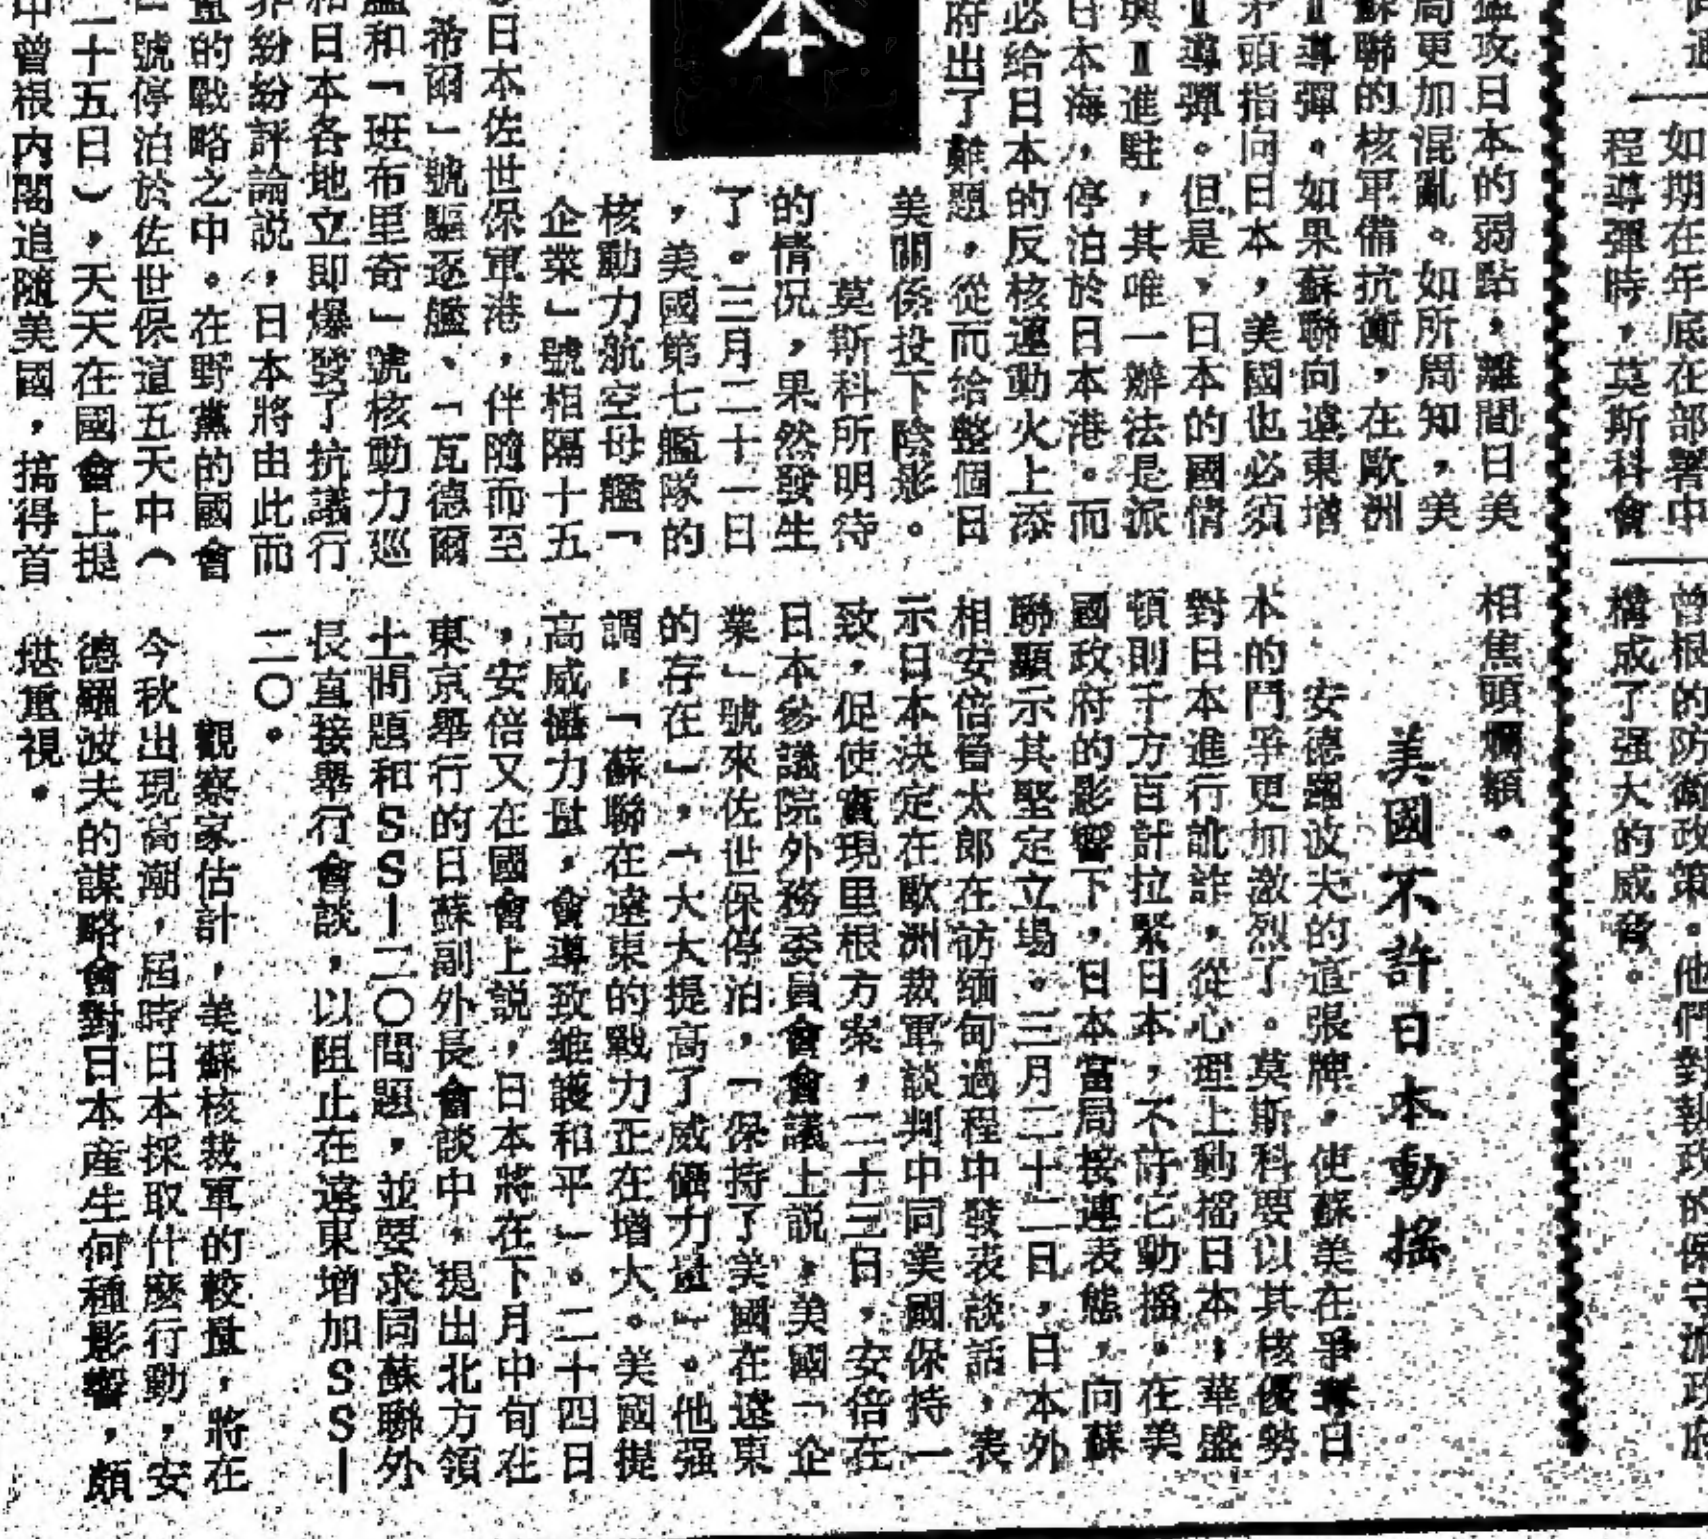 如期在年底在部署中
程導彈時，莫斯科會
曾根的防衛政策。他們對執政的保守派政府
構成了强大的威脅。
猛攻日本的弱點，離間日美
局更加混亂。如所周知，美
蘇聯的核軍備抗衡，在歐洲
Ⅱ導彈。如果蘇聯向遠東增
矛頭指向日本，美國也必須
Ⅱ導彈。但是，日本的國情
與Ⅱ進駐，其唯一辦法是派
日本海，停泊於日本港。而
必給日本的反核運動火上添
府出了難題，從而給整個日
美關係投下陰影。
本
莫斯科所明待
的情况，果然發生
了。三月二十一日
，美國第七艦隊的
核動力航空母艦「
企業」號相隔十五
日本佐世保軍港，伴隨而至
希爾」號驅逐艦、「瓦德爾
溫和「班布里奇」號核動力巡
和日本各地立即爆發了抗議行
非紛紛評論説，日本將由此而
的戰略之中。在野黨的國會
號停泊於佐世保這五天中（
二十五日），天天在國會上提
中曾根内閣追隨美國，搞得首
相焦頭爛額。
美國不許日本動摇
安德羅波夫的這張牌，使蘇美在爭奪日
本的鬥爭更加激烈了。莫斯科要以其核優勢
對日本進行訛詐，從心理上動摇日本，華盛
頓則千方百計拉緊日本，不許它動摇。在美
國政府的影響下，日本當局接連表態，向蘇
聯顯示其堅定立場。三月二十二日，日本外
相安倍晉太郎在訪缅甸過程中發表談話，表
示日本決定在歐洲裁軍談判中同美國保持一
致，促使實現里根方案，二十三日，安倍在
日本參議院外務委員會會議上説，美國「企
業」號來佐世保停泊，「保持了美國在遠東
的存在」，「大大提高了威懾力量」。他强
調，「蘇聯在遠東的戰力正在增大。美國提
高威懾力量，會導致維護和平」。二十四日
，安倍又在國會上説，日本將在下月中旬在
東京舉行的日蘇副外長會談中，提出北方領
土問題和ＳＳ—二〇問題，並要求同蘇聯外
長直接舉行會談，以阻止在遠東增加ＳＳ—
二〇。
觀察家估計，美蘇核裁軍的較量，將在
今秋出現高潮，屆時日本採取什麽行動，安
德羅波夫的謀略會對日本産生何種影響，頗
堪重視。